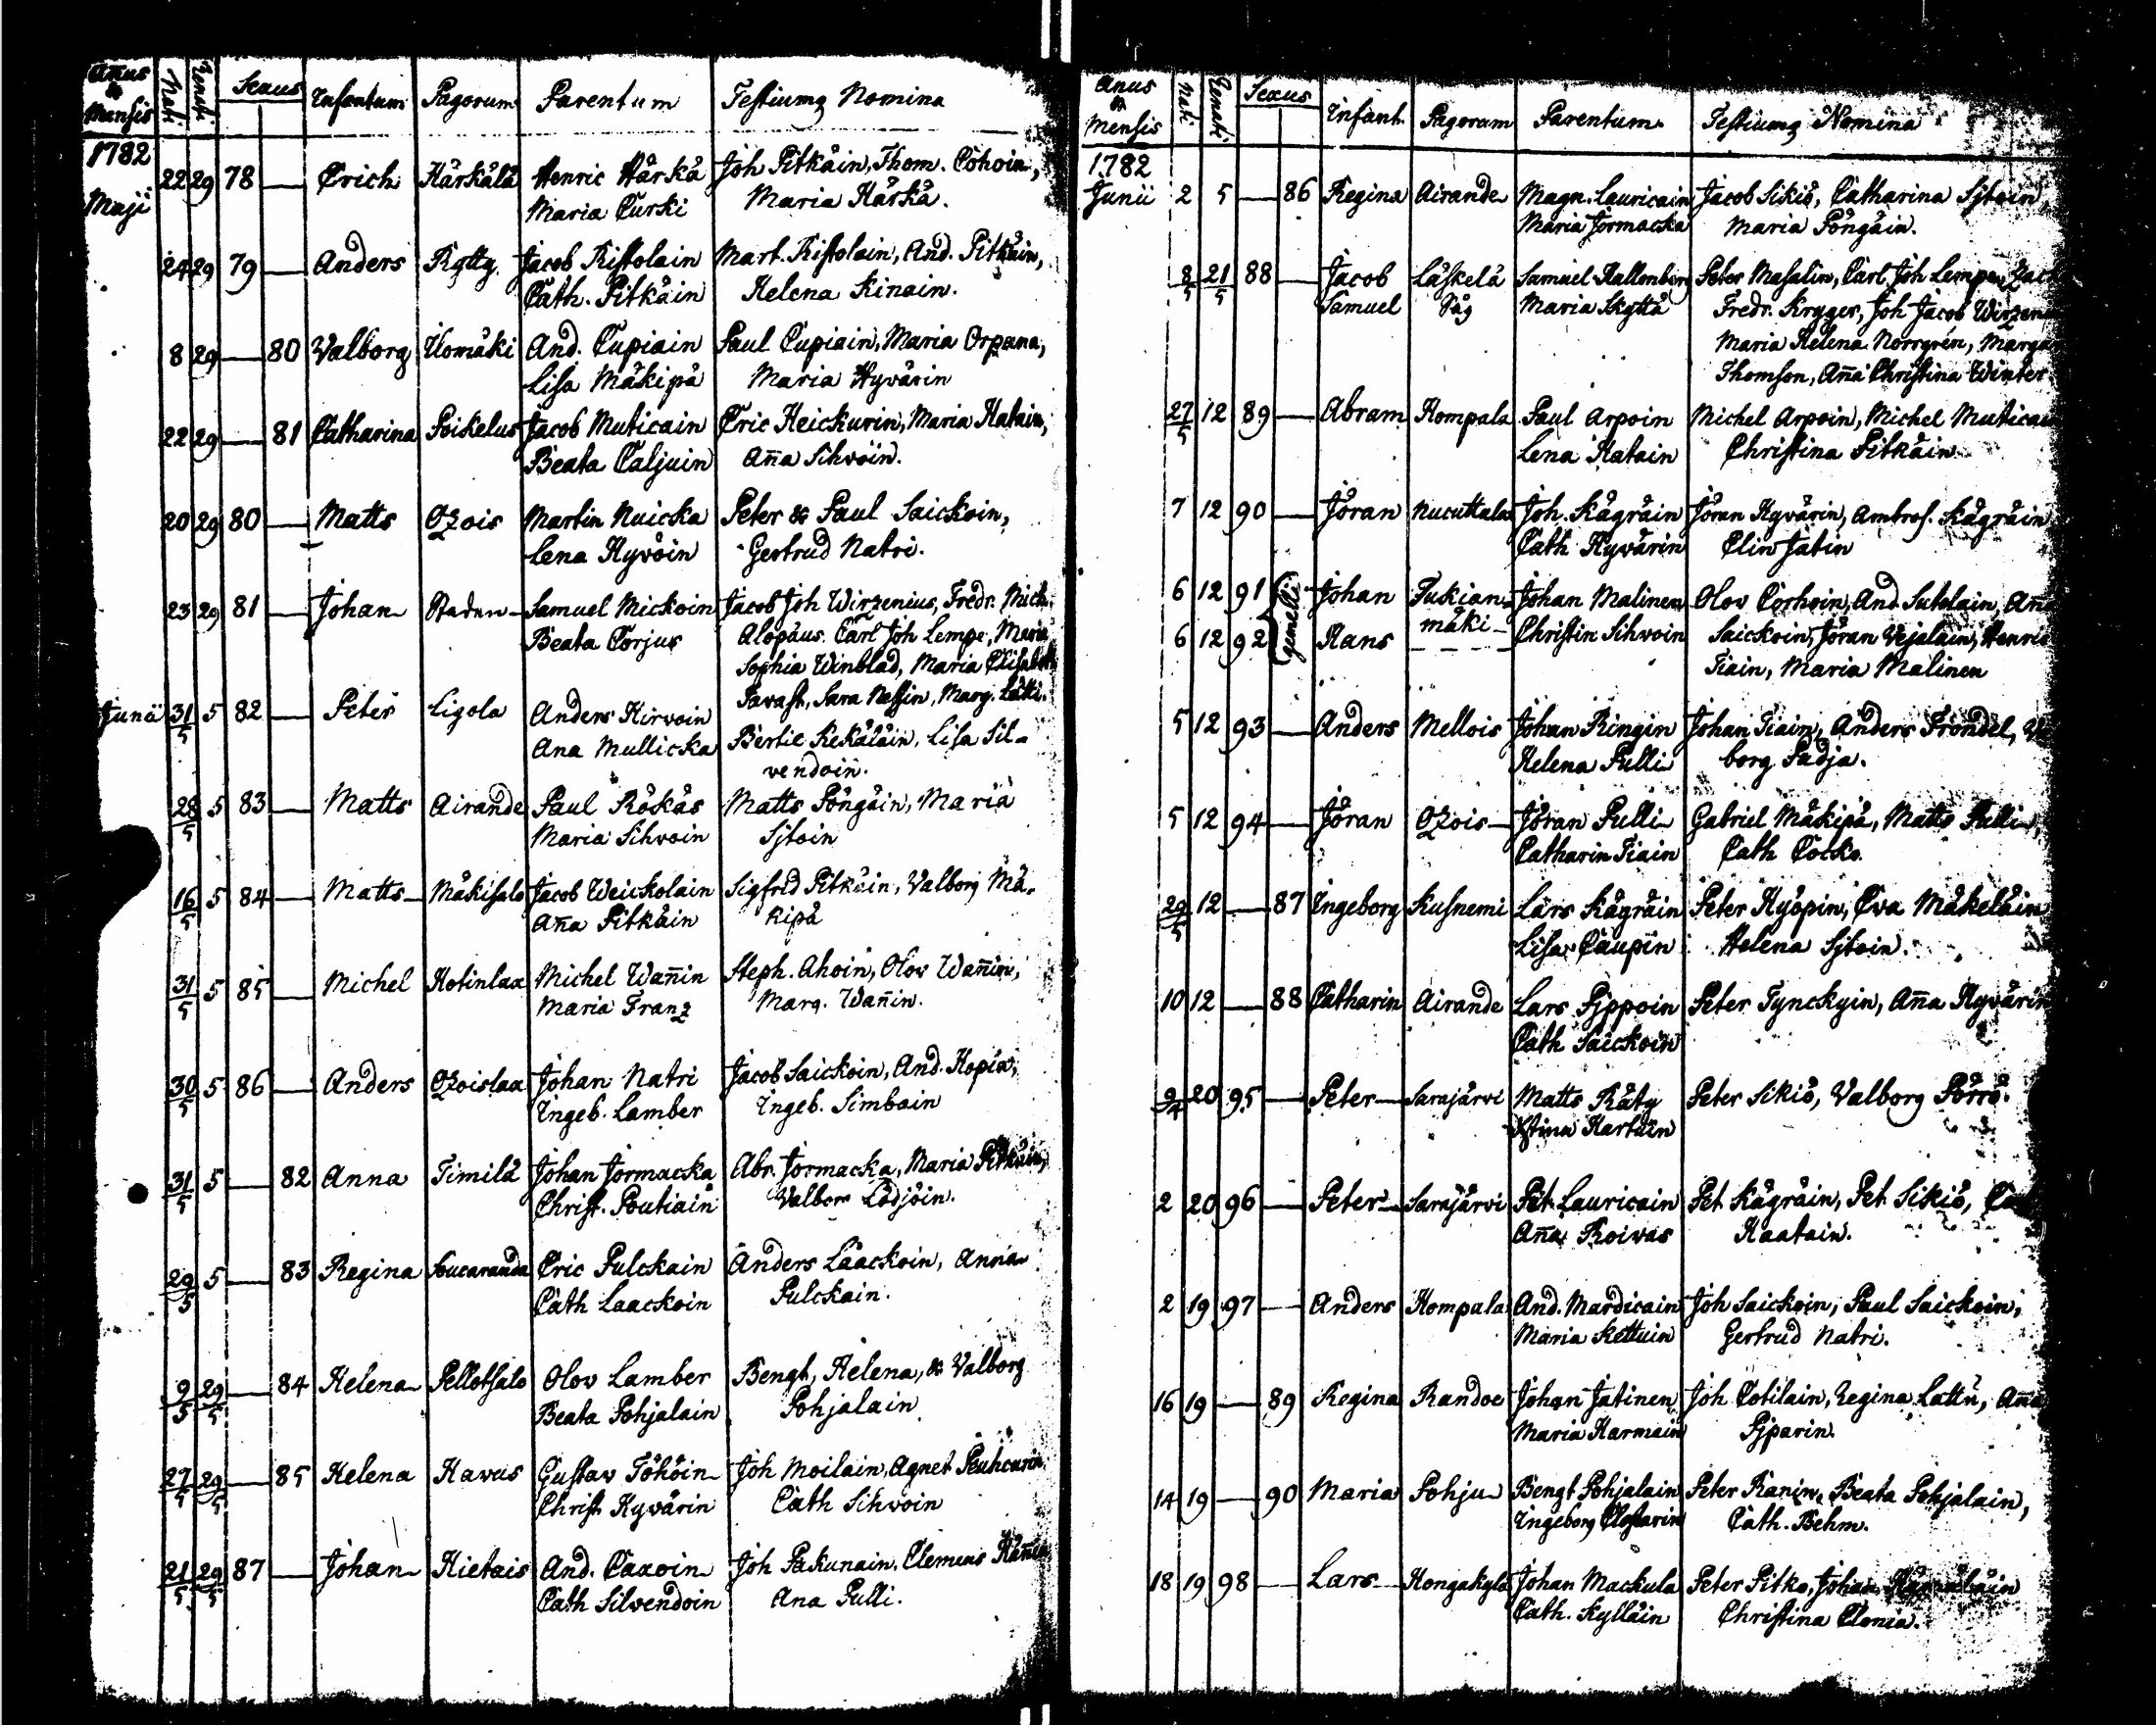 Añus & Mensis Nati Renati Sexus Infantum Pagorum Parentum Testiumq Nomina
1782 Maji 22 29 78 — Erich Härkälä Henric Härkä Joh Pitkäin, Thom. Cohoin,
Maria Curki Maria Härkä.
24 29 79 — Anders Rytty Jacob Ristolain Mart. Ristolain, And. Pitkäin,
Cath. Pitkäin Helena Kinain.
8 29 — 80 Valborg Ilomäki And. Cupiain Paul Cupiain, Maria Orpana,
Lisa Mäkipä Maria Hyvärin
22 29 — 81 Catharina Poikelus Jacob Muticain Eric Heickurin, Maria Hatain,
Beata Caljuin Aña Sihvoin.
20 29 80 — Matts Ozois Martin Nuicka Peter & Paul Saickoin,
Lena Hyvöin Gertrud Natri.
23 29 81 — Johan Staden Samuel Mickoin Jacob Joh Wirzenius, Fredr. Mich.
Beata Corjus Alopäus. Carl Joh Lempe, Maria
Sophia Winblad, Maria Elisabeth
Tavast, Sara Nessin, Marg. Lätti.
Junii 31/5 5 82 — Peter Ligola Anders Hirvoin
Ana Mullicka Bertil Kekäläin, Lisa Sil-
vendoin.
28/5 5 83 — Matts Airande Paul Rökäs Matts Pöngäin, Maria
Maria Sihvoin Sjtoin
16/5 5 84 — Matts Mäkisalo Jacob Weickolain Sigfrid Pitkäin, Valborg Mä-
Aña Pitkäin kipä
31/5 5 85 — Michel Hotinlax Michel Wañin Steph. Ahoin, Olov Wañin,
Maria Franz Marg. Wañin.
30/5 5 86 — Anders Ozoislax Johan Natri Jacob Saickoin, And. Hopia,
Ingeb. Lamber Ingeb. Simbain
31/5 5 — 82 Anna Timilä Johan Jormacka Abr. Jormacka, Maria Pitkäin,
Christ. Poutiain Valbor Lödjöin.
29/5 5 — 83 Regina Soucaranda Eric Pulckain Anders Laackoin, Anna
Cath Laackoin Pulckain.
9/5 29/5 — 84 Helena Pellotsalo Olov Lamber Bengt, Helena, & Valborg
Beata Pohjalain Pohjalain
27/5 29/5 — 85 Helena Havus Gustav Töhöin Joh Moilain, Agnet Peuhcurin
Christ Hyvärin Cath Sihvoin
21/5 29/5 87 — Johan Hietais And. Caxoin Joh Pakunain, Clemens
Cath Silvendoin Ana Pulli.
Anus & Mensis Nati Renati Sexus Infant. Pagorum Parentum Testiumq Nomina
1782 Junii 2 5 — 86 Regina Airande Magn. Lauricain Jacob Sikiö, Catharina Sjtoin,
Maria Jormacka Maria Pöngäin.
8/5 21/5 88 — Jacob Läskelä Samuel Hallonberg Peter Masalin, Carl Joh Lempe,
Samuel Såg Maria Skyttä Fredr. Kryger, Joh Jacob
Maria Helena Norrgrén,
Thomson, Aña Christina Winter
27/5 12 89 — Abram Hompala Paul Arpoin Michel Arpoin, Michel
Lena Hatain Christina Pitkäin
7 12 90 — Jöran Nucuttala Joh. Kägräin Jöran Hyvärin, Ambros. Kägräin
Cath Hyvärin Elin Jatin
6 12 91 gemelli Johan Tukian- Johan Malinen Olov Corhoin, And. Sutelain, Aña
6 12 92 Hans mäki Christin Sihvoin Saickoin, Jöran Vejalain,
Tiain, Maria Malinen
5 12 93 — Anders Mellois Johan Ringin Johan Tiain, Anders Frondel,
Helena Pulli borg Padja.
5 12 94 — Jöran Ozois Jöran Pulli Gabriel Mäkipä, Matts Pulli,
Catharin Tiain Cath Cocko.
29/5 12 — 87 Ingeborg Kusnemi Lars Kägräin Peter Hyöpin, Eva Mäkeläin
Lisa Caupin Helena Sjtoin.
10 12 — 88 Catharin Airande Lars Pjppoin Peter Tynckyin, Aña Hyvärin
Cath Saickoin
9/4 20 95 — Peter Sarajärvi Matts Räty Peter Sikiö, Valborg Pörrö.
Xstina Kartain
2 20 96 — Peter Sarajärvi Pet. Lauricain Pet Kägräin, Pet Sikiö,
Aña Roivas Haatain.
2 19 97 — Anders Hompala And. Mardicain Joh Saickoin, Paul Saickoin,
Maria Kettuin Gertrud Natri.
16 19 — 89 Regina Randoe Johan Jatinen Joh Cotilain, Regina Lattu, Aña
Maria Harmain Pjparin.
14 19 — 90 Maria Pohju Bengt Pohjalain Peter Ranin, Beata Pohjalain,
Ingeborg Clostarin Cath. Behm.
18 19 98 — Lars Hongakylä Johan Mackula Peter Pitko, Johan
Cath. Kylläin Christina Clonia.